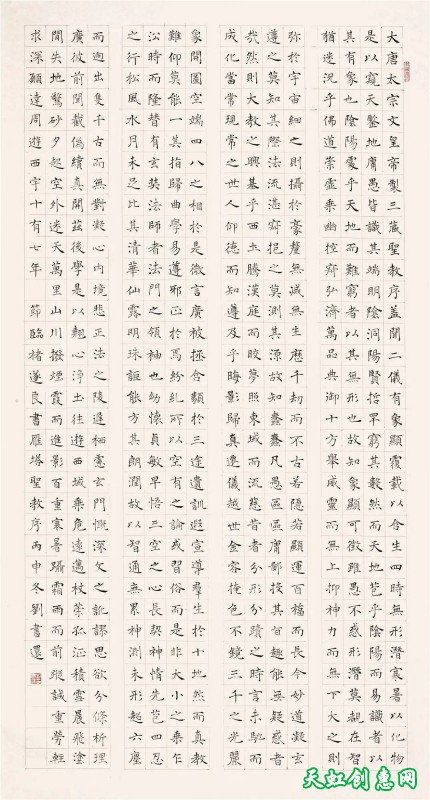 大唐太宗文皇帝製三藏聖教序蓋聞二儀有象顯覆載以含生四時無形潛寒暑以化物
是以窺天鑒地庸愚皆識其端明陰洞陽賢哲罕窮其數然而天地苞乎陰陽而易識者以
其有象也陰陽處乎天地而難窮者以其無形也故知象顯可徵雖愚不惑形潛莫覩在智
猶迷況乎佛道崇虛乘幽控寂弘濟萬品典御十方舉威靈而無上抑神力而無下大之則
彌於宇宙細之則攝於豪釐無滅無生歷千劫而不古若隱若顯運百福而長今妙道凝玄
遵之莫知其際法流湛寂挹之莫測其源故知蠢蠢凡愚區區庸鄙投其旨趣能無疑惑者
哉然則大教之興基乎西土騰漢庭而皎夢照東域而流慈昔者分形分蹟之時言未馳而
成化當常現常之世人仰德而知遵及乎晦影歸真遷儀越世金容掩色不鏡三千之光麗
象開圖空端四八之相於是微言廣被拯含類於三途遺訓遐宣導羣生於十地然而真教
難仰莫能一其指歸曲學易遵邪正於焉紛糺所以空有之論或習俗而是非大小之乘乍
沿時而隆替有玄奘法師者法門之領袖也幼懷貞敏早悟三空之心長契神情先苞四忍
之行松風水月未足比其清華仙露明珠詎能方其朗潤故以智通無累神測未形超六塵
而迥出隻千古而無對凝心內境悲正法之陵遲栖慮玄門慨深文之訛謬思欲分條析理
廣彼前聞截偽續真開茲後學是以翹心淨土往遊西域乘危遠邁杖策孤征積雪晨飛塗
閒失地驚砂夕起空外迷天萬里山川撥煙霞而進影百重寒暑躡霜雨而前蹤誠重勞輕
求深願達周遊西宇十有七年 節臨褚遂良書雁塔聖教序丙申冬劉書還
天虹创意网